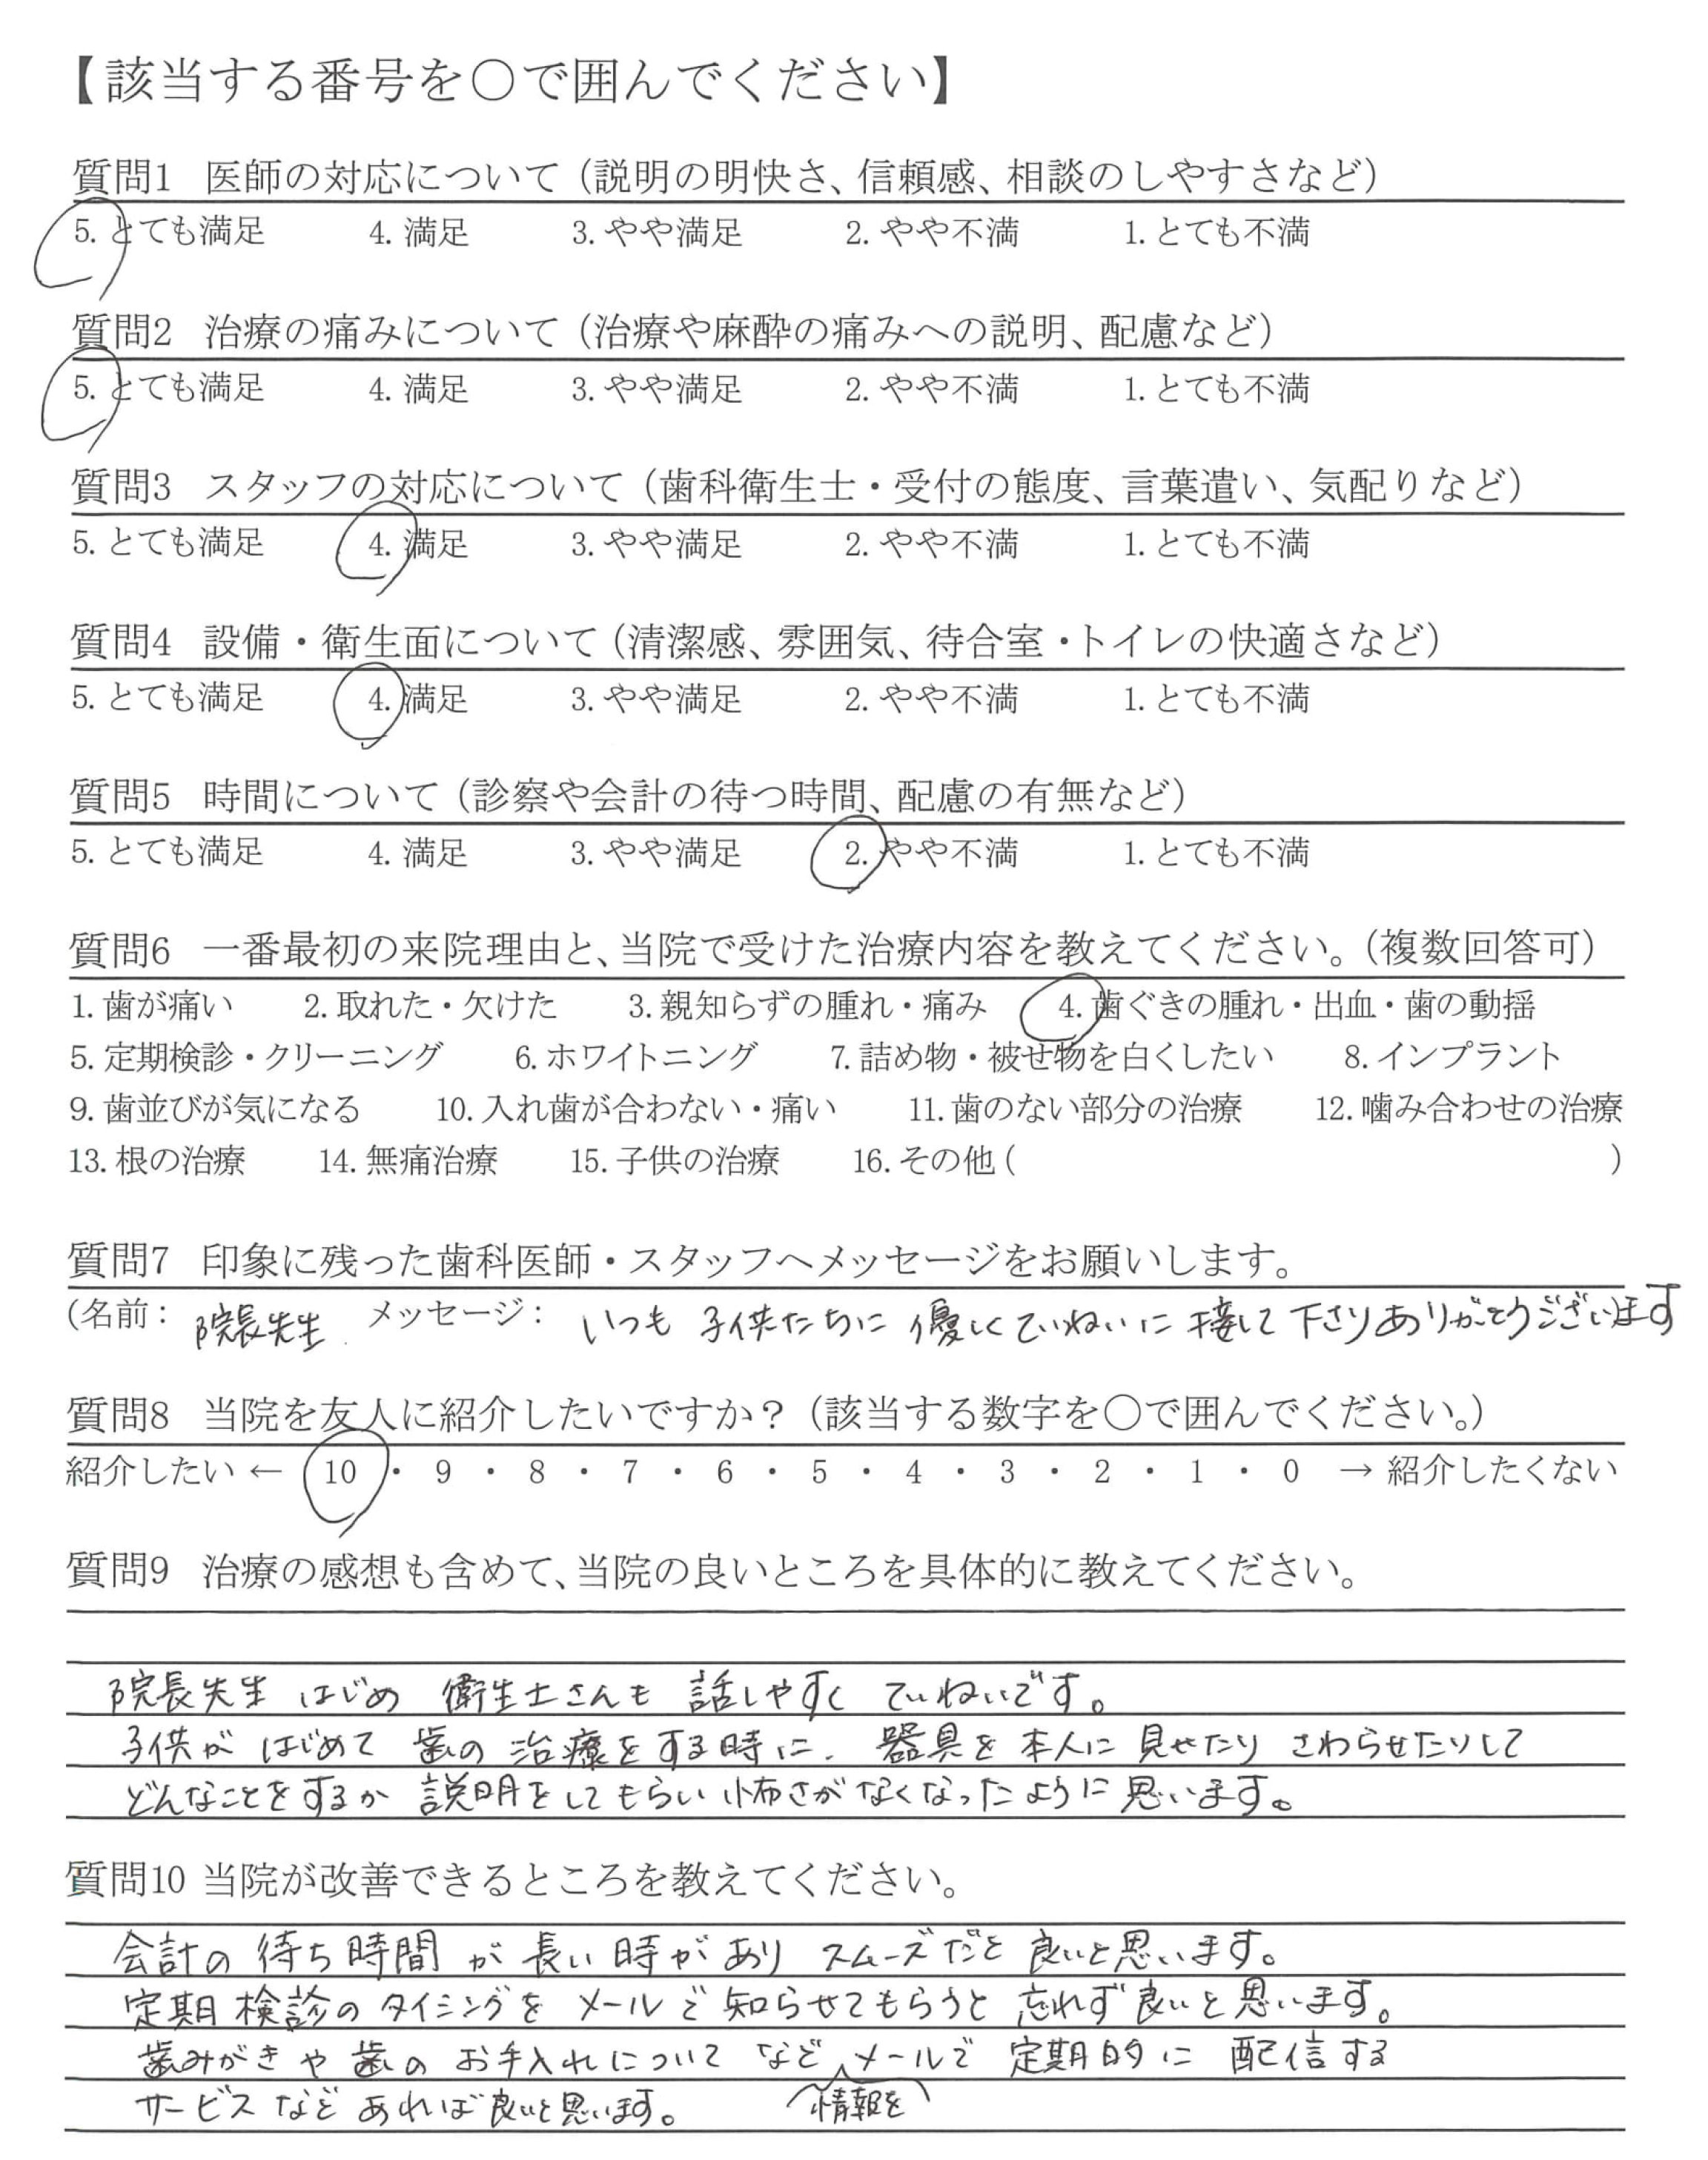 【該当する番号を○で囲んでください】
質問1 医師の対応について（説明の明快さ、信頼感、相談のしやすさなど）
5. とても満足 4. 満足 3. やや満足 2. やや不満 1. とても不満
質問2 治療の痛みについて（治療や麻酔の痛みへの説明、配慮など）
5. とても満足 4. 満足 3. やや満足 2. やや不満 1. とても不満
質問3 スタッフの対応について（歯科衛生士・受付の態度、言葉遣い、気配りなど）
5. とても満足 4. 満足 3. やや満足 2. やや不満 1. とても不満
質問4 設備・衛生面について（清潔感、雰囲気、待合室・トイレの快適さなど）
5. とても満足 4. 満足 3. やや満足 2. やや不満 1. とても不満
質問5 時間について（診察や会計の待つ時間、配慮の有無など）
5. とても満足 4. 満足 3. やや満足 2. やや不満 1. とても不満
質問6 一番最初の来院理由と、当院で受けた治療内容を教えてください。（複数回答可）
1. 歯が痛い 2. 取れた・欠けた 3. 親知らずの腫れ・痛み 4. 歯ぐきの腫れ・出血・歯の動揺
5. 定期検診・クリーニング 6. ホワイトニング 7. 詰め物・被せ物を白くしたい 8. インプラント
9. 歯並びが気になる 10. 入れ歯が合わない・痛い 11. 歯のない部分の治療 12. 噛み合わせの治療
13. 根の治療 14. 無痛治療 15. 子供の治療 16. その他（ ）
質問7 印象に残った歯科医師・スタッフへメッセージをお願いします。
（名前： 院長先生 メッセージ： いつも 子供たちに 優しくていねいに 接して 下さりありがとうございます
質問8 当院を友人に紹介したいですか？（該当する数字を○で囲んでください。）
紹介したい ← 10 ・ 9 ・ 8 ・ 7 ・ 6 ・ 5 ・ 4 ・ 3 ・ 2 ・ 1 ・ 0 → 紹介したくない
質問9 治療の感想も含めて、当院の良いところを具体的に教えてください。
院長先生 はじめ 衛生士さんも 話しやすく ていねいです。
子供が はじめて 歯の 治療を する時に、器具を 本人に 見せたり さわらせたりして
どんなことをするか 説明をしてもらい 怖さがなくなったように 思います。
質問10 当院が改善できるところを教えてください。
会計の 待ち時間 が 長い時が あり スムーズだと 良いと思います。
定期検診の タイミングを メールで 知らせてもらうと 忘れず良いと思います。
歯みがきや 歯の お手入れについて など メールで 定期的に 配信する
サービスなど あれば良いと思います。 情報を